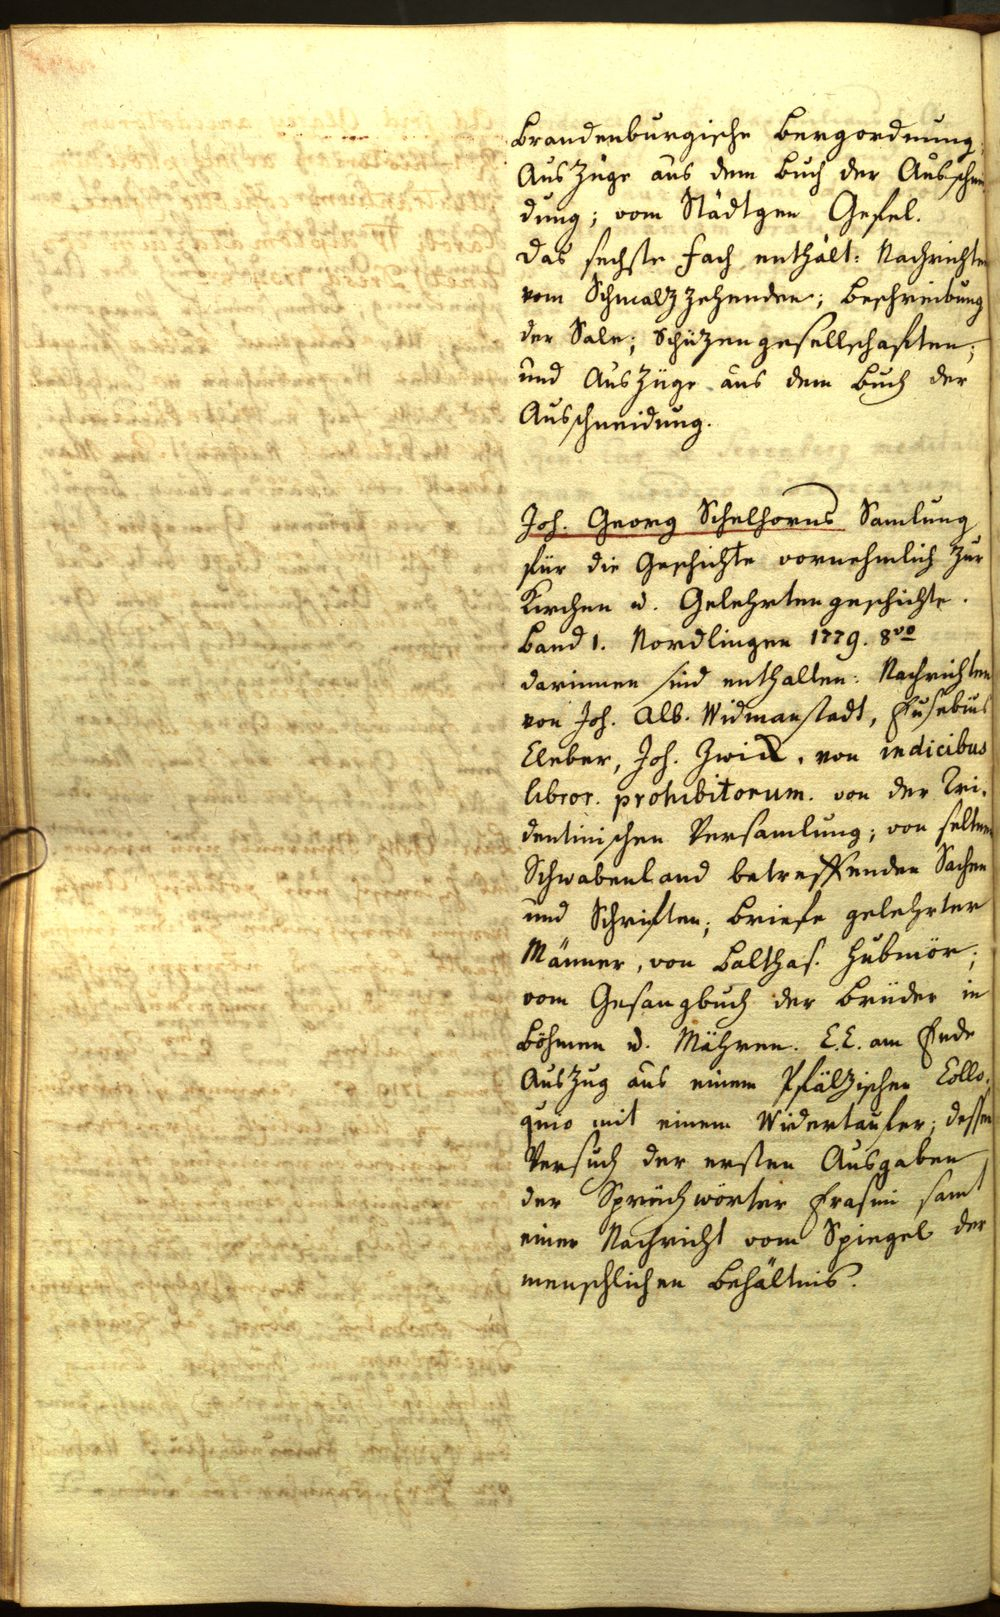 Brandenburgische Bergordnung;
Auszüge aus dem Buch der Ausschnei
dung; vom Städtgen Gefel.
das sechste Fach enthält: Nachrichten
vom Schmalzzehenden; Beschreibung
der Sale; Schüzengesellschaften;
und Auszüge aus dem Buch der
Ausschneidung.
Joh. Georg Schelhorns Samlung
für die Geschichte vornehmlich zur
Kirchen u. Gelehrtengeschichte.
Band 1. Nordlingen 1779. 8vo
darinnen sind enthalten: Nachrichten
von Joh. Alb. Widmanstadt, Eusebius
Cleber, Joh. Zwick, von indicibus
libror. prohibitorum. von der Tri-
dentinischen Versamlung; von seltnen
Schwabenland betreffenden Sachen
und Schriften; Briefe gelehrter
Männer, von Balthas. Hubmör;
vom Gesangbuch der Brüder in
Böhmen u. Mähren. E.E. am Ende
Auszug aus einem Pfälzischen Collo-
quio mit einem Widertaufer; dessen
Versuch der ersten Ausgaben
der Sprüchwörter Erasmi samt
einer Nachricht vom Spiegel der
menschlichen Behältnis.